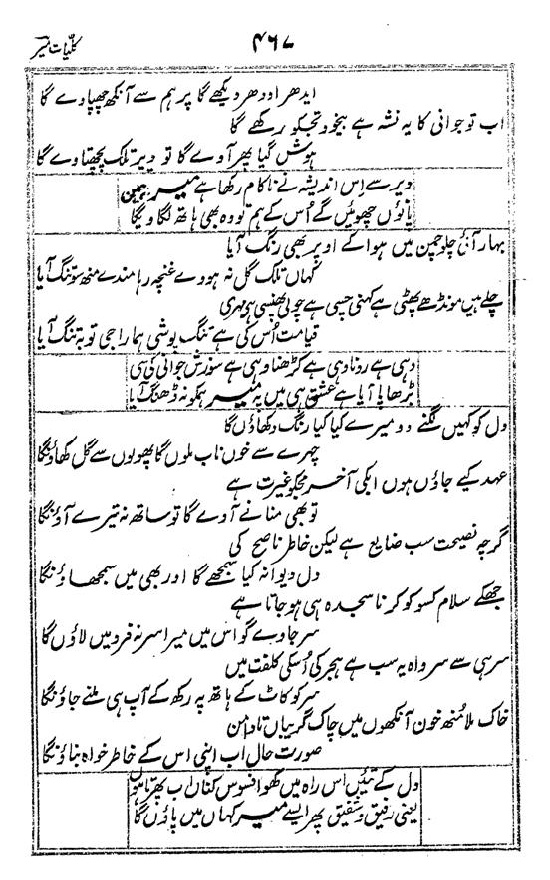 کلیات میر
۴۶۷
ایدھر اودھر دیکھے گا پر ہم سے آنکھ چھپاوے گا
اب تو جوانی کا یہ نشہ ہے بیخود تجکو رکھے گا
ہوش گیا پھر آوے گا تو دیر تلک پچھتاوے گا
دیر سے اس اندیشہ نے ناکام رکھا ہے میر ہمیں
پانوں چھوئیں گے اُس کے ہم تو وہ بھی ہاتھ لگاویگا
بہار آئی چلو چمن میں ہوا کے اوپر بھی رنگ آیا
کہاں تلک گل نہ ہووے غنچہ رہا مندے منھ سو تنگ آیا
چلے ہیں مونڈھے پھٹی ہے کہنی چسی ہے چولی پھنسی ہی مہری
قیامت اُس کی ہے تنگ پوشی ہمارا جی تو بتنگ آیا
وہی ہے رونا وہی ہے کڑھنا وہی ہے سوزش جوانی کی سی
بڑھاپا آیا ہے عشق ہی میں پہ میر ہمکو نہ ڈھنگ آیا
دل کو کہیں لگنے دو میرے کیا کیا رنگ دکھاؤں گا
چہرے سے خون ناب ملوں گا پھولوں سے گل کھاؤنگا
عہد کیے جاؤں ہوں ابکی آخر مجکو غیرت ہے
تو بھی منانے آوے گا تو ساتھ نہ تیرے آؤنگا
گرچہ نصیحت سب ضایع ہے لیکن خاطر ناصح کی
دل دیوانہ کیا سمجھے گا اور بھی میں سمجھاؤنگا
جھکے سلام کسو کو کرنا سجدہ ہی ہو جاتا ہے
سر جاوے گو اس میں میرا سر نہ فرو میں لاؤں گا
سر ہی سے سرواہ یہ سب ہے ہجر کی اُسکی کلفت میں
سر کو کاٹ کے ہاتھ پہ رکھ کے آپ ہی ملنے جاؤنگا
خاک ملا منھ خون آنکھوں میں چاک گریباں تا دامن
صورت حال اب اپنی اس کے خاطر خواہ بناؤنگا
دل کے تئیں اس راہ میں کھو افسوس کناں اب پھرتا ہوں
یعنی رفیق و شفیق پھر ایسے میر کہاں میں پاؤں گا